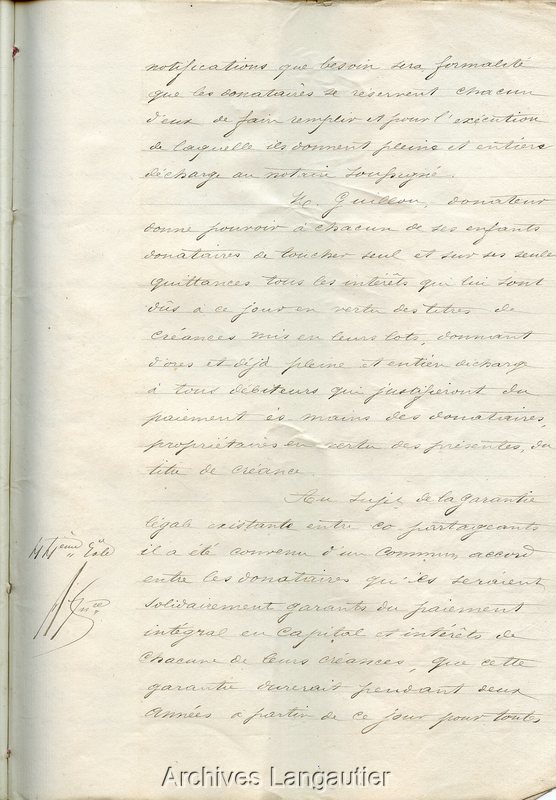 notifications que besoin sera, formalité
que les donataires se réservent chacun
d'eux de faire remplir et pour l'exécution
de laquelle ils donnent pleine et entière
décharge au notaire soussigné.
M. Guillou, donateur
donne pouvoir à chacun de ses enfants
donataires de toucher seul et sur ses seules
quittances tous les intérêts qui lui sont
dûs à ce jour en vertu des titres de
créances mis en leurs lots, donnant
d'ores et déjà pleine et entière décharge
à tous débiteurs qui justifieront du
paiement ès mains des donataires,
propriétaires en vertu des présentes, du
titre de créance.
Au sujet de la garantie
légale existante entre co-partageants
il a été convenu d'un commun accord
entre les donataires qu'ils seraient
solidairement garants du paiement
intégral en capital et intérêts de
chacune de leurs créances, que cette
garantie durerait pendant deux
années à partir de ce jour pour toutes
Archives Langautier